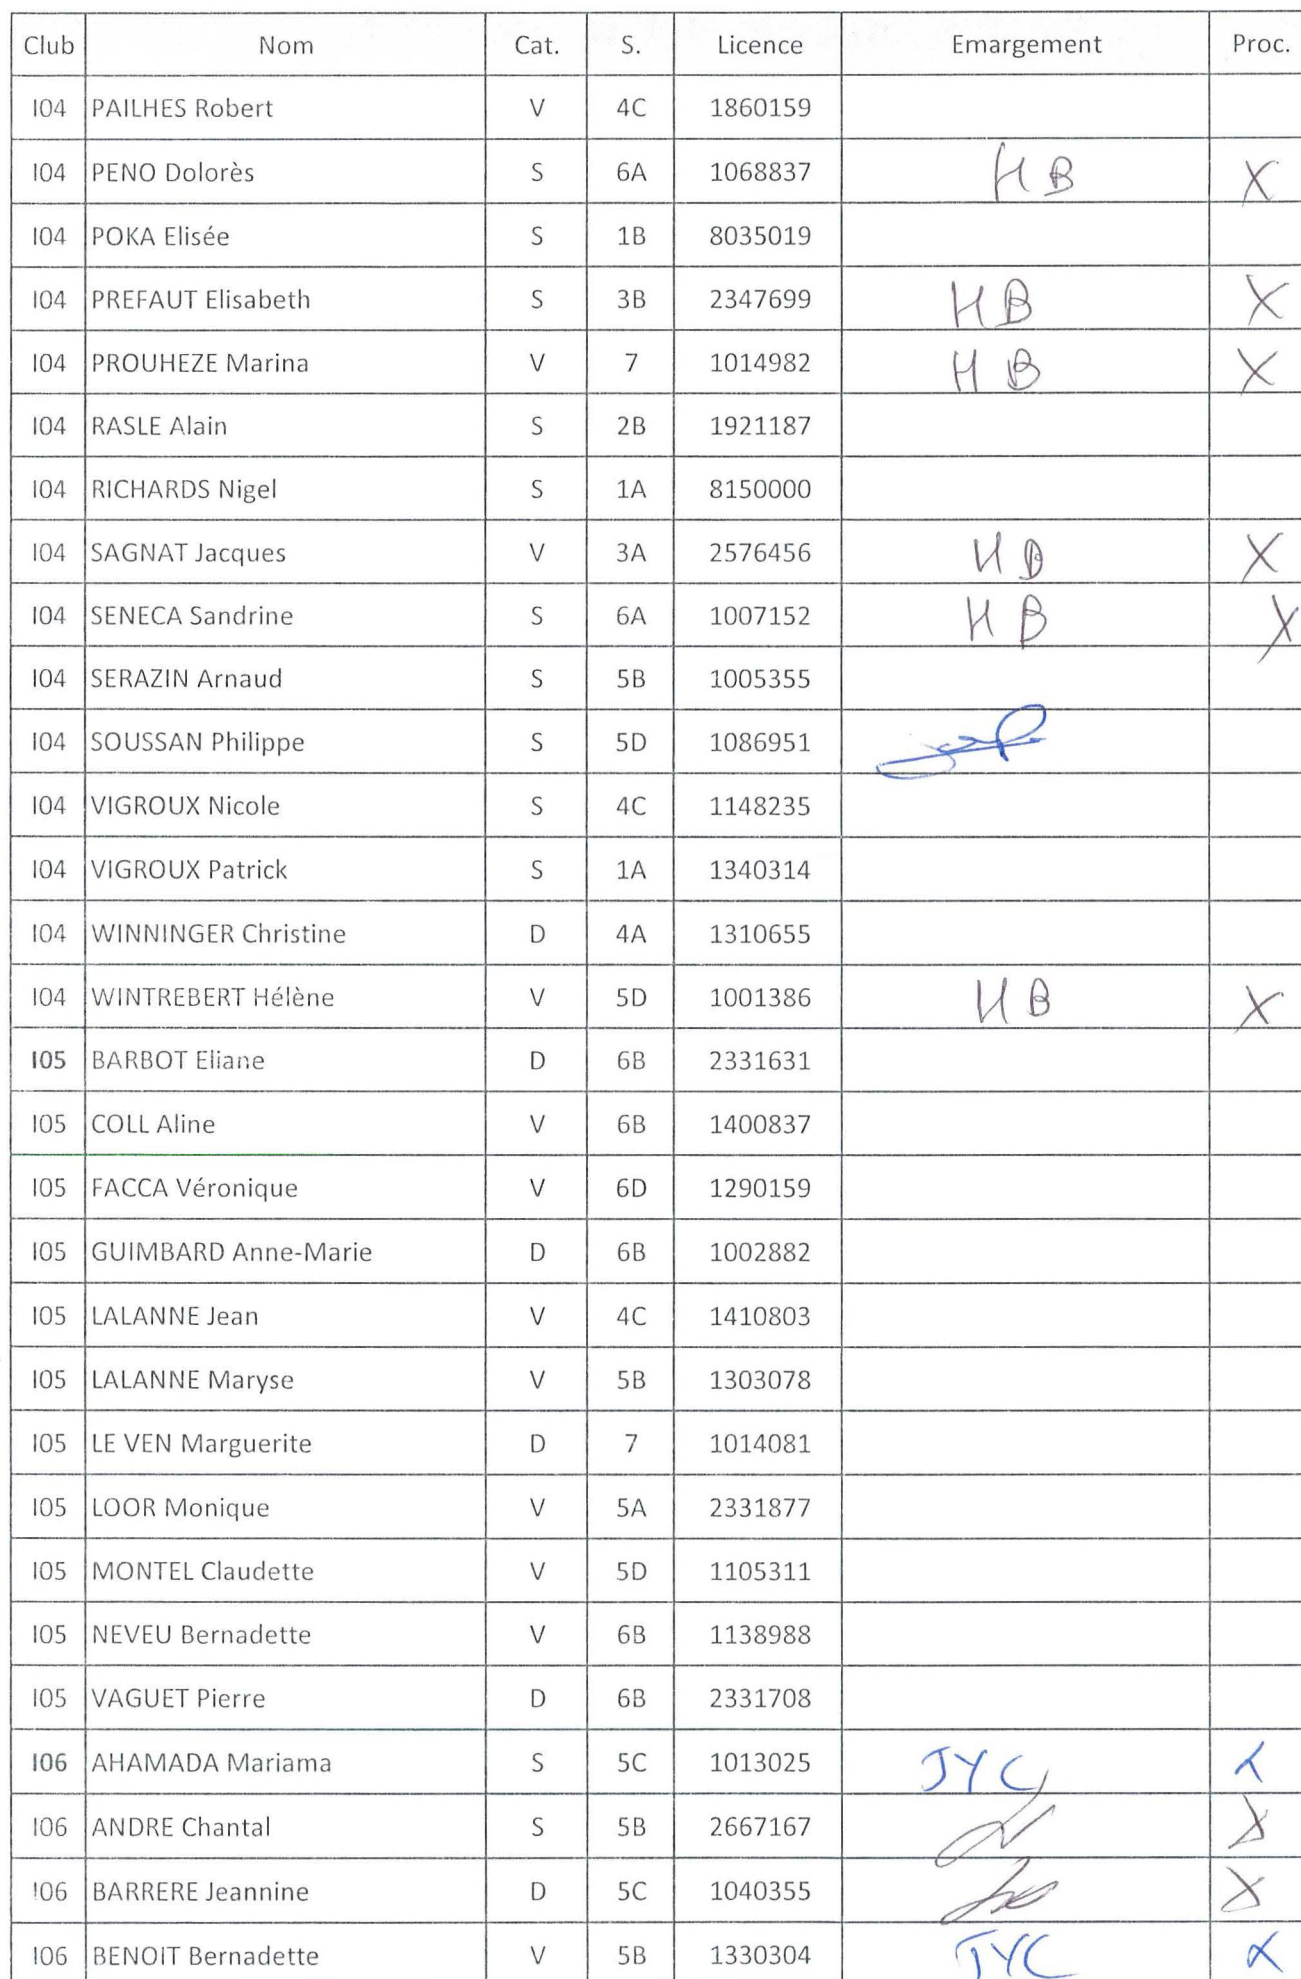 Club Nom Cat. S. Licence Emargement Proc.
I04 PAILHES Robert V 4C 1860159
I04 PENO Dolorès S 6A 1068837 H B X
I04 POKA Elisée S 1B 8035019
I04 PREFAUT Elisabeth S 3B 2347699 H B X
I04 PROUHEZE Marina V 7 1014982 H B X
I04 RASLE Alain S 2B 1921187
I04 RICHARDS Nigel S 1A 8150000
I04 SAGNAT Jacques V 3A 2576456 H B X
I04 SENECA Sandrine S 6A 1007152 H B X
I04 SERAZIN Arnaud S 5B 1005355
I04 SOUSSAN Philippe S 5D 1086951
I04 VIGROUX Nicole S 4C 1148235
I04 VIGROUX Patrick S 1A 1340314
I04 WINNINGER Christine D 4A 1310655
I04 WINTREBERT Hélène V 5D 1001386 H B X
I05 BARBOT Eliane D 6B 2331631
I05 COLL Aline V 6B 1400837
I05 FACCA Véronique V 6D 1290159
I05 GUIMBARD Anne-Marie D 6B 1002882
I05 LALANNE Jean V 4C 1410803
I05 LALANNE Maryse V 5B 1303078
I05 LE VEN Marguerite D 7 1014081
I05 LOOR Monique V 5A 2331877
I05 MONTEL Claudette V 5D 1105311
I05 NEVEU Bernadette V 6B 1138988
I05 VAGUET Pierre D 6B 2331708
I06 AHAMADA Mariama S 5C 1013025 JYC X
I06 ANDRE Chantal S 5B 2667167 X
I06 BARRERE Jeannine D 5C 1040355 X
I06 BENOIT Bernadette V 5B 1330304 JYC X